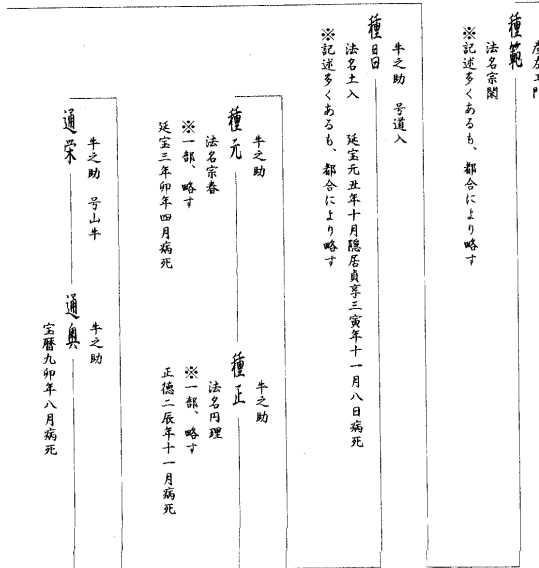 種範
法名宗閑
※記述多くあるも、都合により略す
牛之助 号道入
種昌
法名土入 延宝元丑年十月隠居貞享三寅年十一月八日病死
※記述多くあるも、都合により略す
牛之助
種元
法名宗春
※一部、略す
延宝三年卯年四月病死
牛之助
種正
法名円理
※一部、略す
正徳二辰年十一月病死
牛之助 号山牛
通栄
牛之助
通奥
宝暦九卯年八月病死